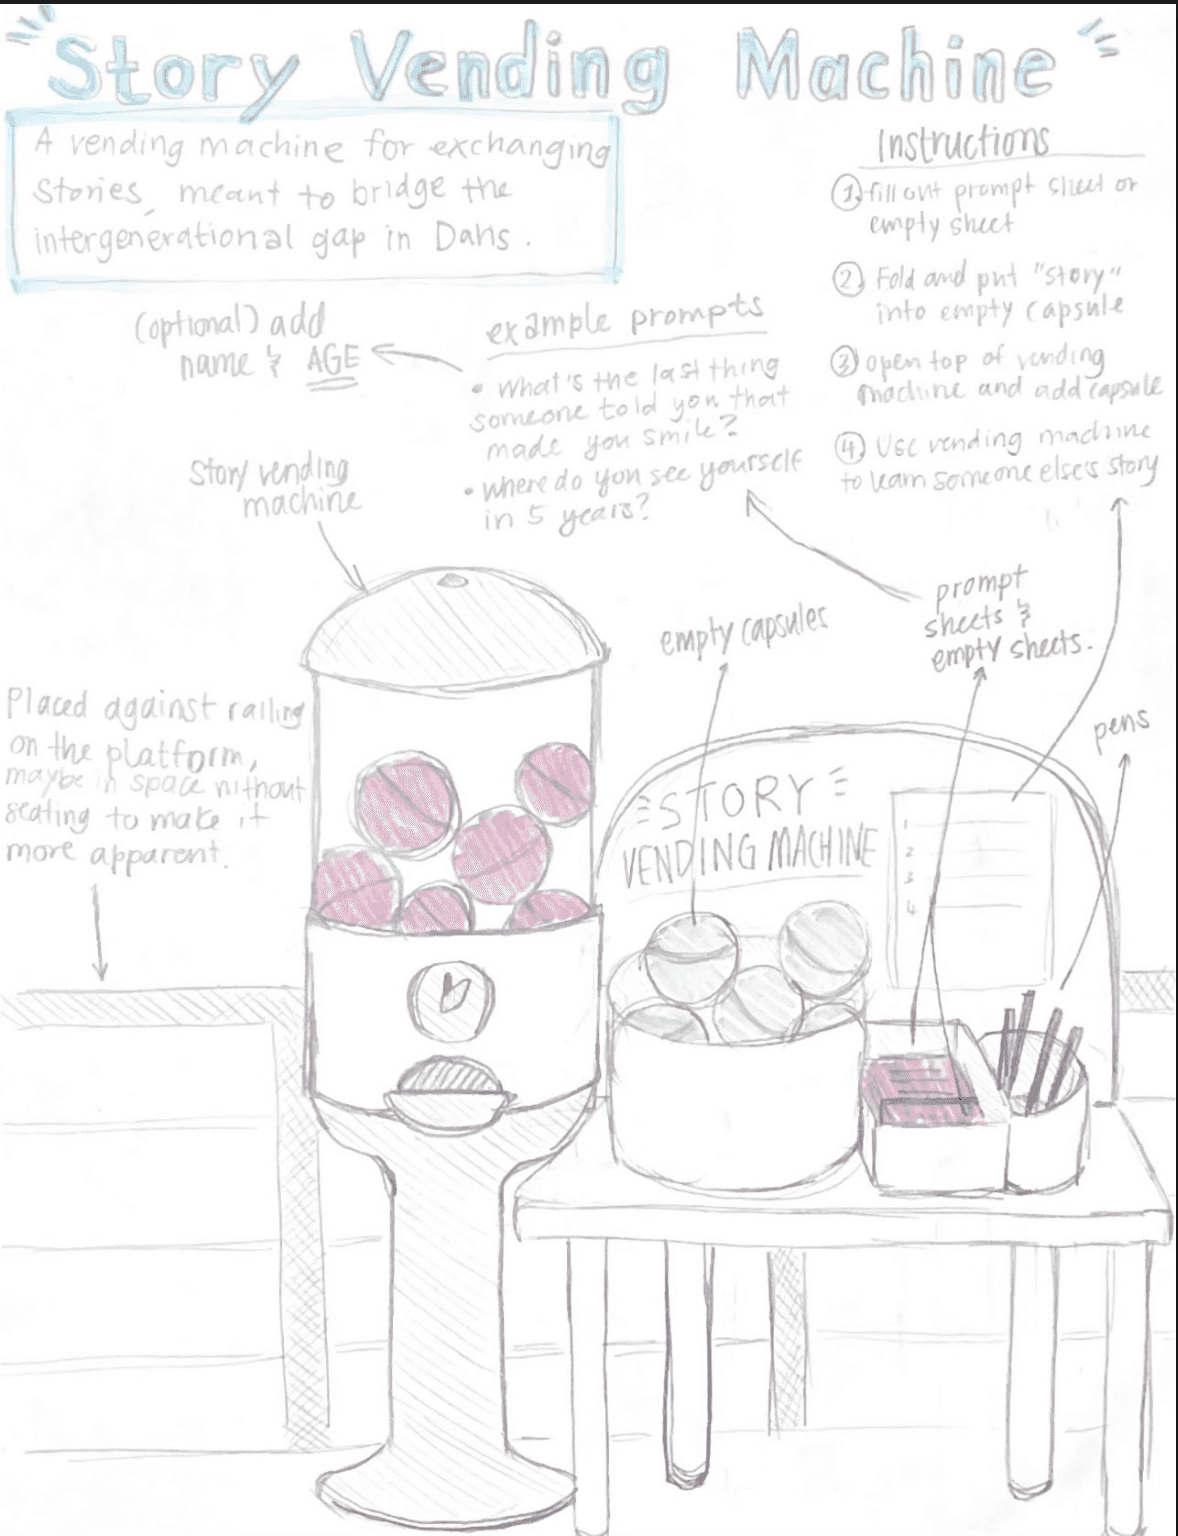 Story Vending Machine
A vending machine for exchanging
stories, meant to bridge the
intergenerational gap in Dans.
Instructions
① fill out prompt sheet or
empty sheet
② Fold and put "story"
into empty capsule
③ open top of vending
machine and add capsule
④ Use vending machine
to learn someone else's story
(optional) add
name & AGE
example prompts
• What's the last thing
someone told you that
made you smile?
• where do you see yourself
in 5 years?
Story vending
machine
empty capsules
prompt
sheets &
empty sheets.
pens
Placed against railing
on the platform,
maybe in space without
seating to make it
more apparent.
STORY
VENDING MACHINE
1
2
3
4